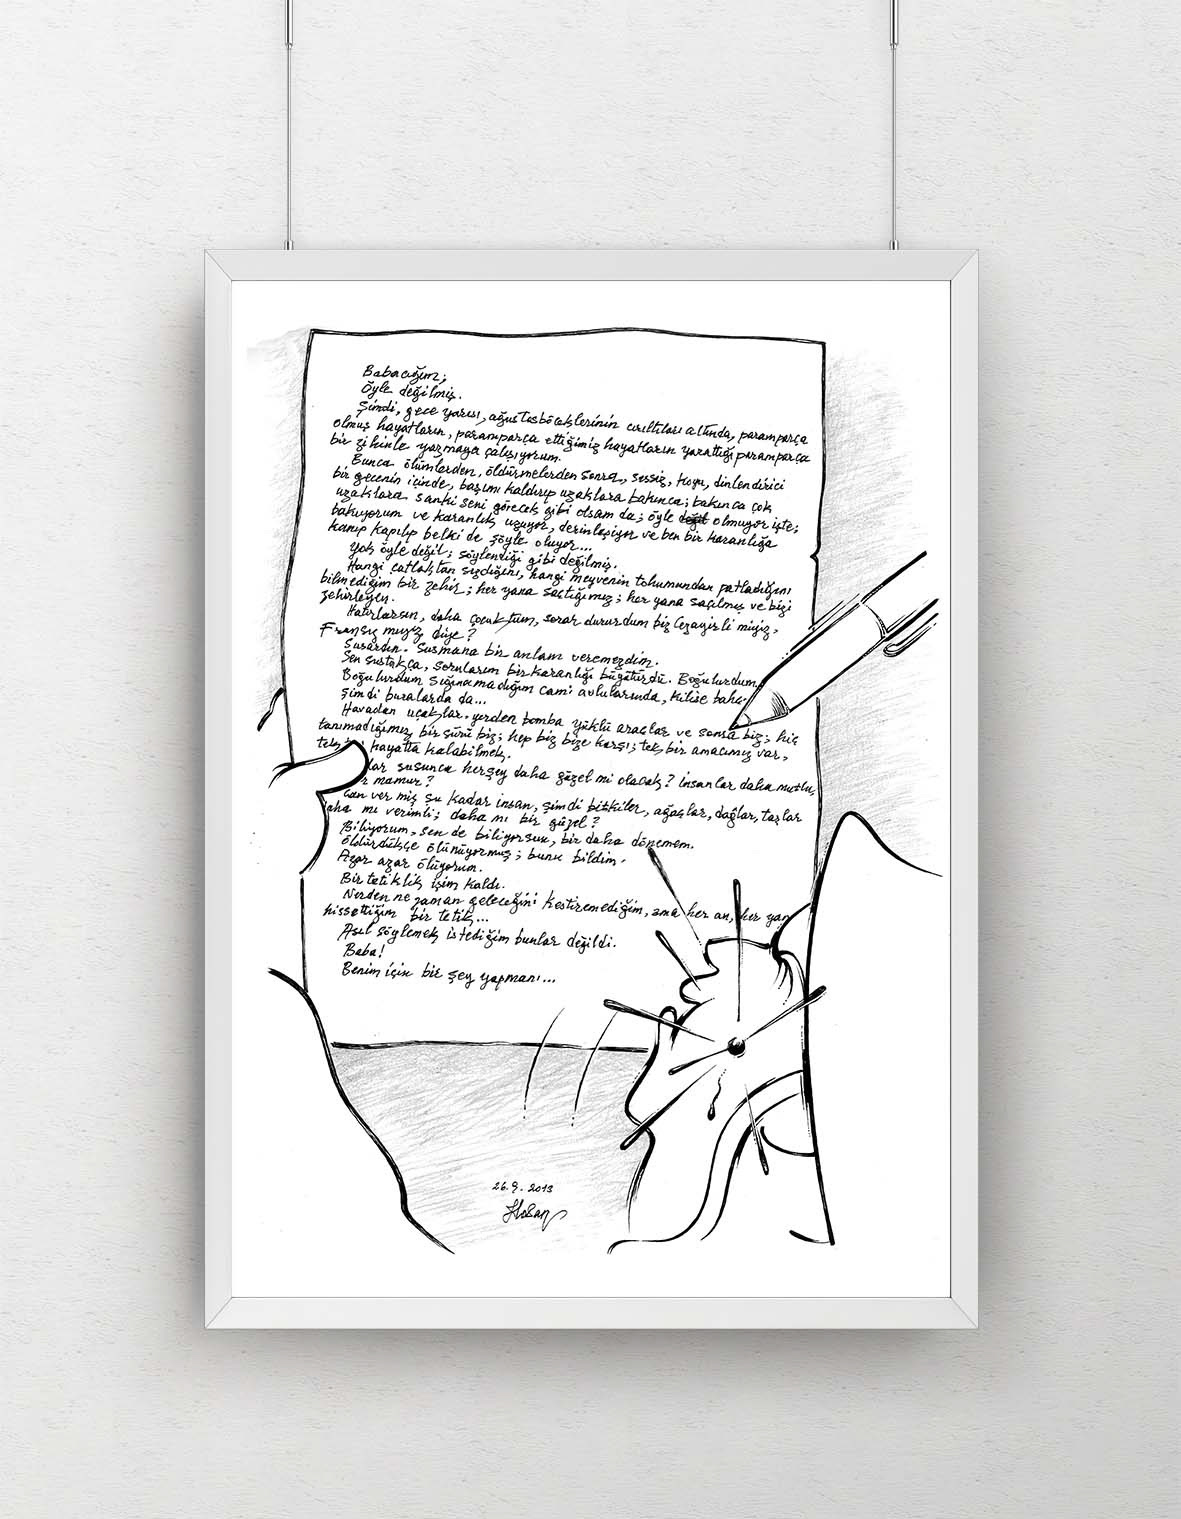 Babacığım;
Öyle değilmiş.
Şimdi, gece yarısı, ağustosböceklerinin cırıltıları altında, paramparça
olmuş hayatların, paramparça ettiğimiz hayatların yarattığı paramparça
bir zihinle yazmaya çalışıyorum.
Bunca ölümlerden, öldürmelerden sonra, sessiz, koyu, dinlendirici
bir gecenin içinde, başımı kaldırıp uzaklara bakınca; bakınca çok
uzaklara sanki seni görecek gibi olsam da; öyle değil olmuyor işte;
bakıyorum ve karanlık uzuyor, derinleşiyor ve ben bir karanlığa
kanıp kapılıp belki de şöyle oluyor...
Yok öyle değil; söylendiği gibi değilmiş.
Hangi çatlaktan sızdığını, hangi meyvenin tohumundan patladığını
bilmediğim bir zehir; her yana saçtığımız; her yana saçılmış ve bizi
zehirleyen.
Hatırlarsın, daha çocuktum, sorar dururdum biz Cezayirli miyiz,
Fransız mıyız diye?
Susardın. Susmana bir anlam veremezdim.
Sen sustukça, sorularım bir karanlığı büyütürdü. Boğulurdum,
Boğulurdum sığınamadığım cami avlularında, kilise bahç
Şimdi buralarda da...
Havadan uçaklar, yerden bomba yüklü araçlar ve sonra biz; hiç
tanımadığımız bir sürü biz; hep biz bize karşı; tek bir amacımız var,
tek hayatta kalabilmek.
lar susunca herşey daha güzel mi olacak? İnsanlar daha mutlu,
r mamur?
Can vermiş şu kadar insan, şimdi bitkiler, ağaçlar, dağlar, taşlar
aha mı verimli; daha mı bir güzel?
Biliyorum, sen de biliyorsun, bir daha dönemem.
Öldürdükçe ölünüyormuş; bunu bildim.
Azar azar ölüyorum.
Bir tetiklik işim kaldı.
Nerden ne zaman geleceğini kestiremediğim, ama her an, her yan
hissettiğim bir tetik...
Asıl söylemek istediğim bunlar değildi.
Baba!
Benim için bir şey yapmanı...
26.9.2013